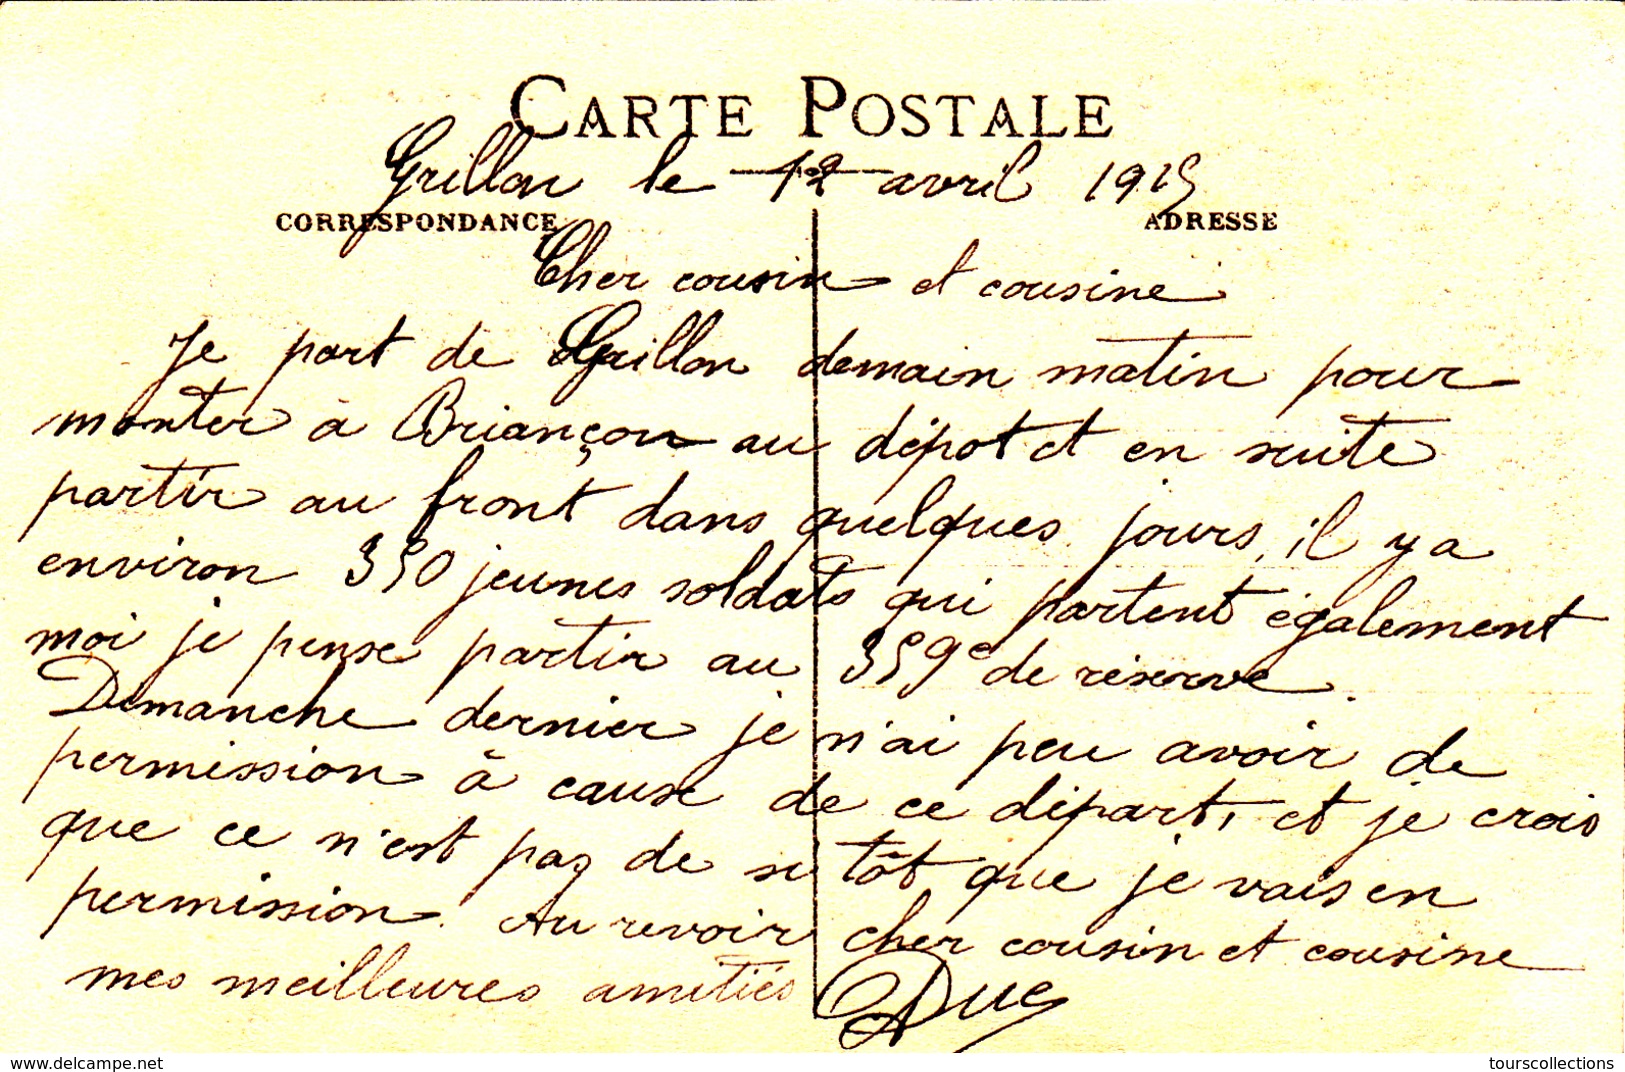 CARTE POSTALE
Grillon le 12 avril 1915
CORRESPONDANCE ADRESSE
Cher cousin et cousine
Je part de Grillon demain matin pour
monter à Briançon au dépot et en suite
partir au front dans quelques jours, il y a
environ 350 jeunes soldats qui partent également
moi je pense partir au 359e de réserve.
Demanche dernier je n'ai peu avoir de
permission à cause de ce départ, et je crois
que ce n'est pas de si tôt que je vais en
permission. Au revoir cher cousin et cousine
mes meilleures amitiés
www.delcampe.net tourscollections